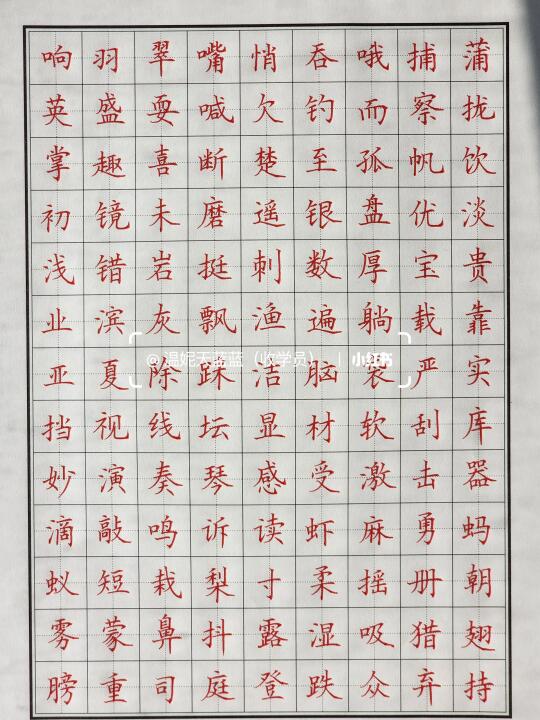 响羽翠嘴悄吞哦捕蒲
英盛耍喊欠钓而察拢
掌趣喜断楚至孤帆饮
初镜未磨遥银盘优淡
浅错岩挺刺数厚宝贵
业滨灰飘渔遍躺载靠
亚夏除踩洁脑袋严实
@温妮天蓝蓝（收学员） | 小红书
挡视线坛显材软刮库
妙演奏琴感受激击器
滴敲鸣诉读虾麻勇蚂
蚁短栽梨寸柔摇册朝
雾蒙鼻抖露湿吸猎翅
膀重司庭登跌众弃持